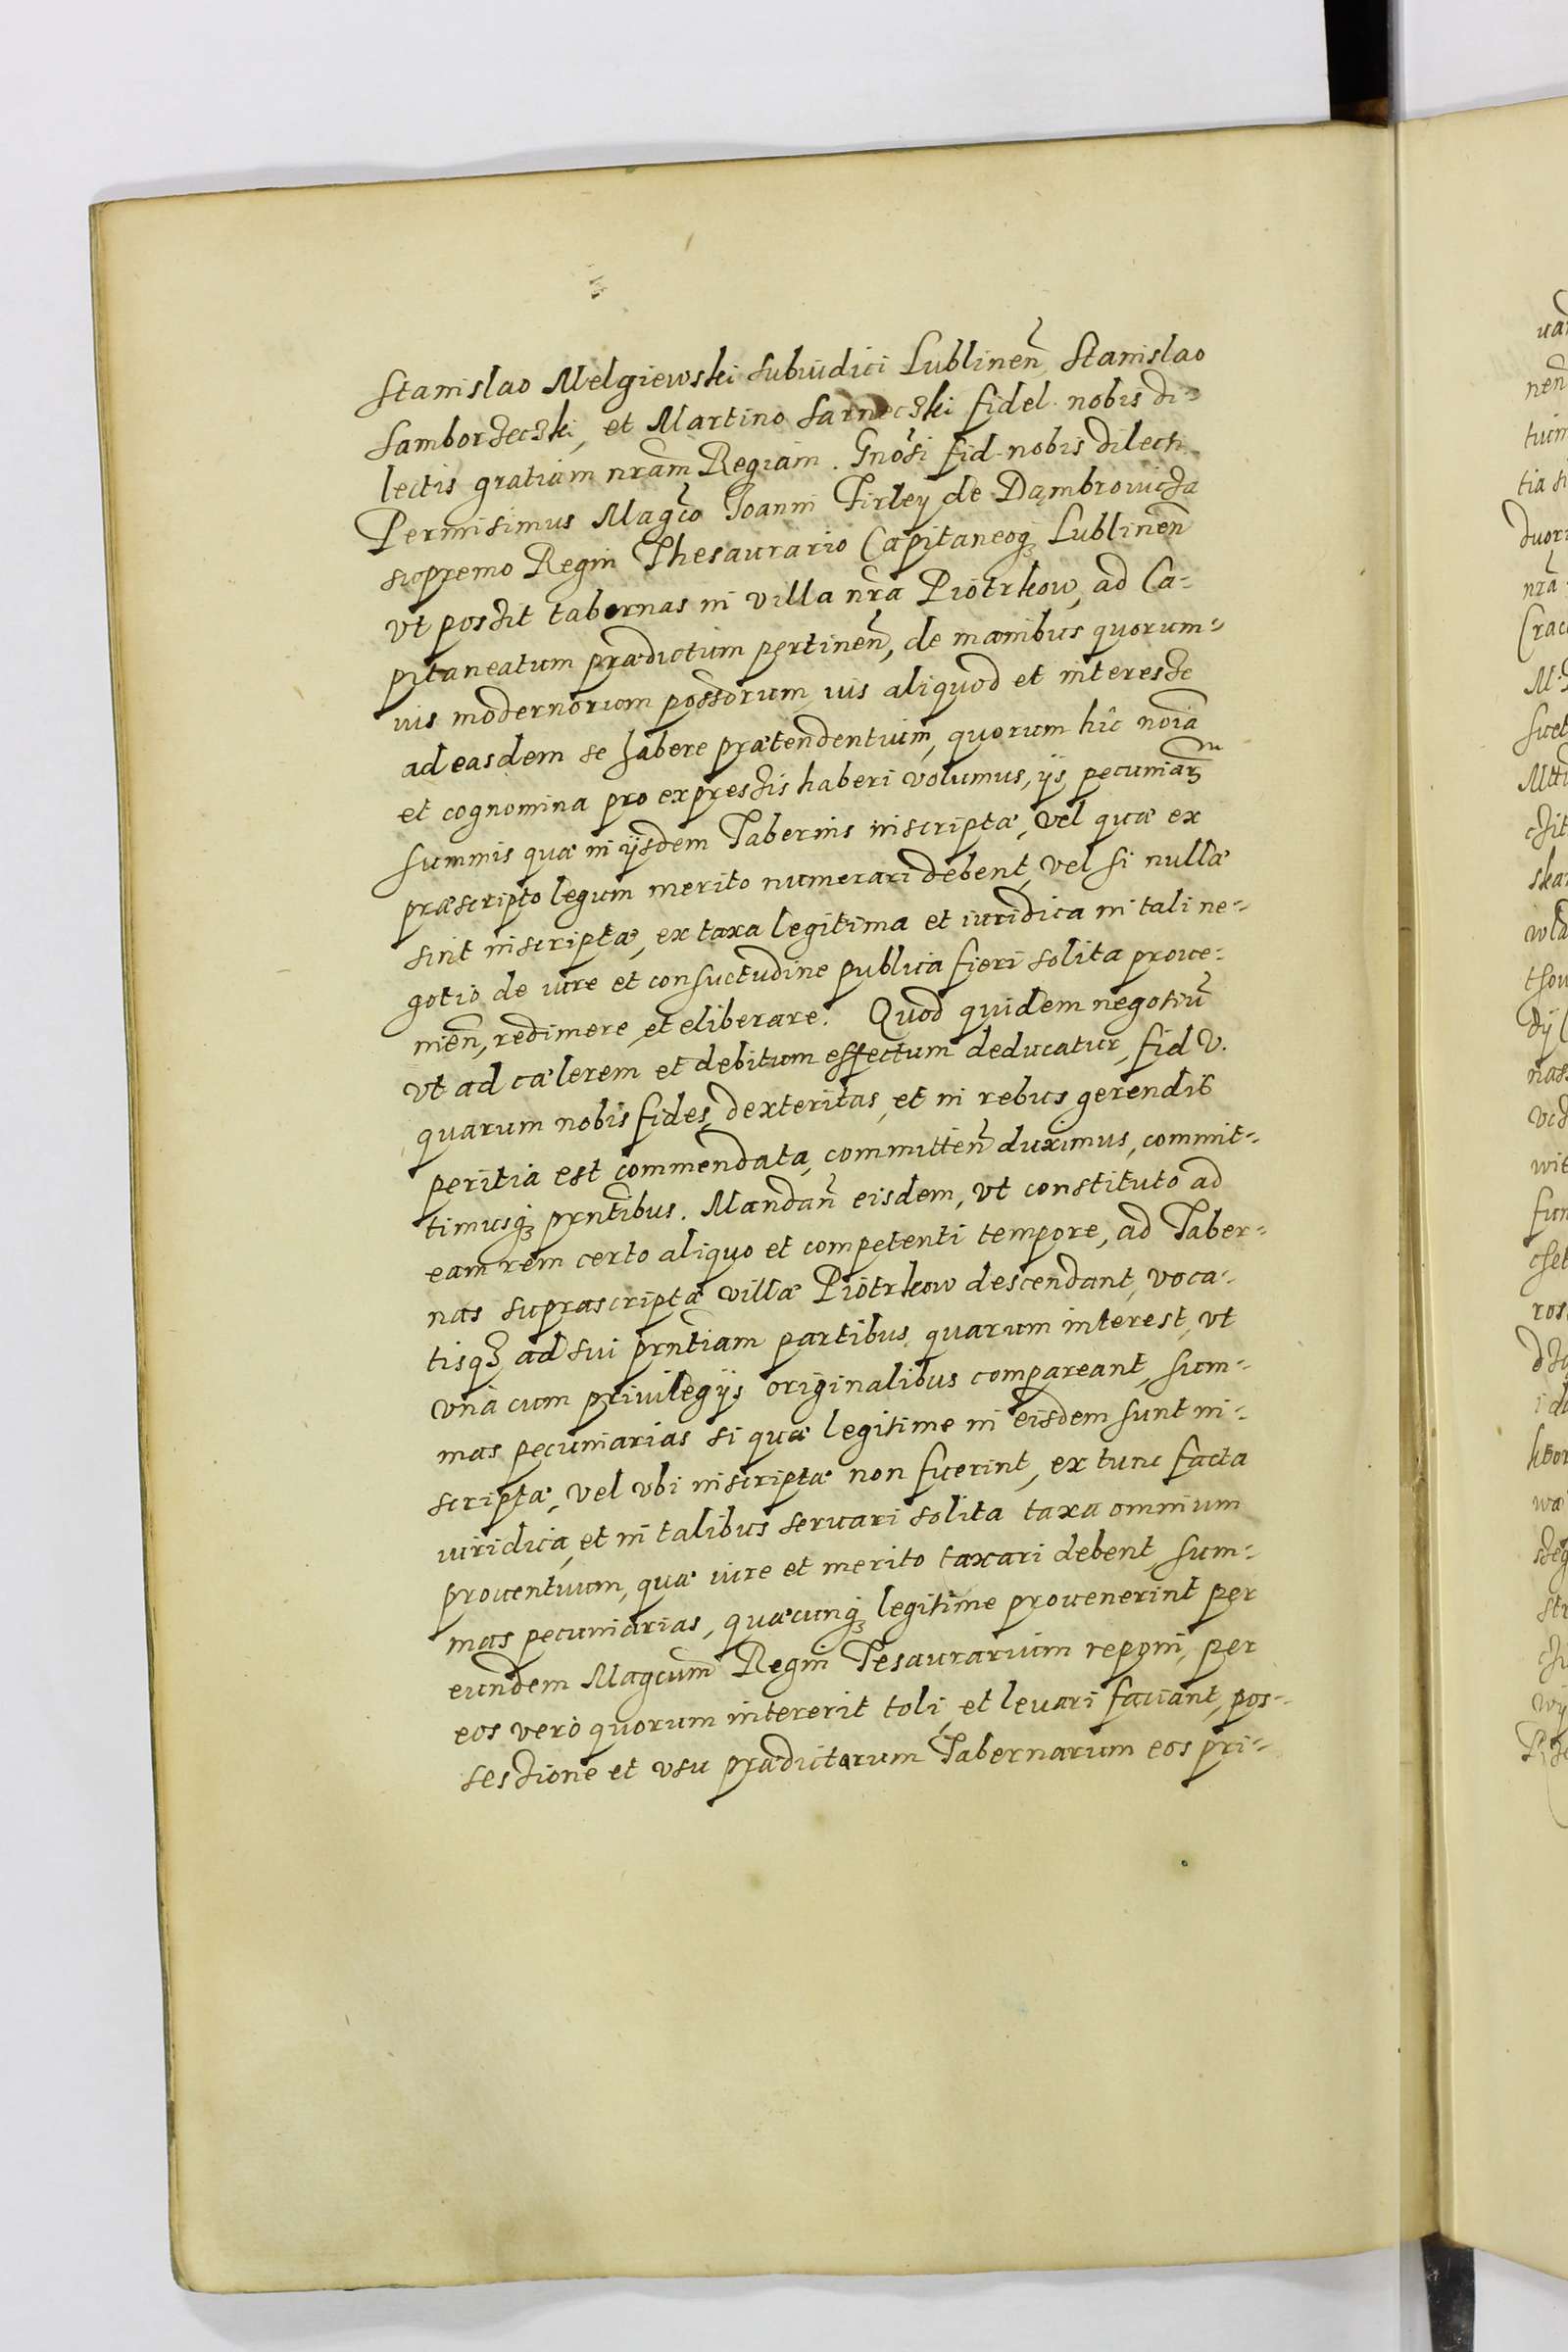 Stanislao Melgiewski subiudici Lublineñ, Stanislao
Samborzeczki, et Martino Sarneczki fidel. nobis di-
lectis gratiam nrãm Regiam. Gnõsi fid. nobis dilecti
Permisimus Magco Ioanni Firley de Dąmbrowicza
supremo Regni Thesaurario Capitaneoq3 Lublineñ
vt possit tabernas in villa nrã Piotrkow, ad Ca-
pitaneatum prædictum pertineñ, de manibus quorum-
uis modernorum possorum, ius aliquod et interesse
ad easdem se habere prætendentium, quorum hîc noĩa
et cognomina pro expressis haberi volumus, ijs pecuniar3
summis quæ in ijsdem Tabernis inscriptæ, vel quæ ex
præscripto legum merito numerari debent, vel si nullæ
sint inscriptæ, ex taxa legitima et iuridica in tali ne-
gotio de iure et consuetudine publica fieri solita proue-
nieñ, redimere et eliberare. Quod quidem negotiũ
vt ad cælerem et debitum effectum deducatur, fid V.
quarum nobis fides, dexteritas, et in rebus gerendis
peritia est commendata, committeñ duximus, commit-
timusq3 prntibus. Mandañ eisdem, vt constituto ad
eam rem certo aliquo et competenti tempore, ad Taber-
nas suprascriptæ villæ Piotrkow descendant, voca-
tisq3 ad sui prntiam partibus quarum interest, vt
vnà cum priuilegijs originalibus compareant, sum-
mas pecuniarias si quæ legitime in eisdem sunt in-
scriptæ, vel vbi inscriptæ non fuerint, ex tunc facta
iuridica, et in talibus seruari solita taxa omnium
prouentuum, quæ iure et merito taxari debent, sum-
mas pecuniarias, quæcunq3 legitime prouenerint per
eundem Magcum Regni Tesaurarium reponi, per
eos verò quorum intererit toli, et leuari faciant, pos-
sessione et vsu prædictarum Tabernarum eos pri-